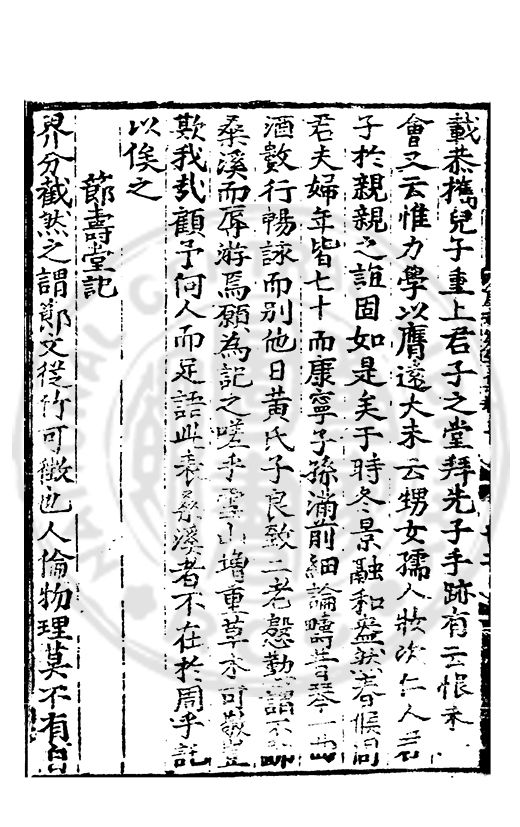 載恭攜兒子重上君子之堂拜先子手跡有云恨未
會又云惟力學以膺遠大末云甥女孺人妝次仁人君
子於親親之誼固如是矣于時冬景融和盎然春候同
君夫婦年皆七十而康寧子孫滿前細論疇昔琴一曲
酒數行暢詠而別他日黃氏子良致二老慇懃謂不鄙
桑溪而辱游焉願為記之嗟乎雲山增重草木可敬豈
欺我哉顧予何人而足語此表桑溪者不在於周乎記
以俟之
節壽堂記
界分截然之謂節文從竹可徵也人倫物理莫不有自